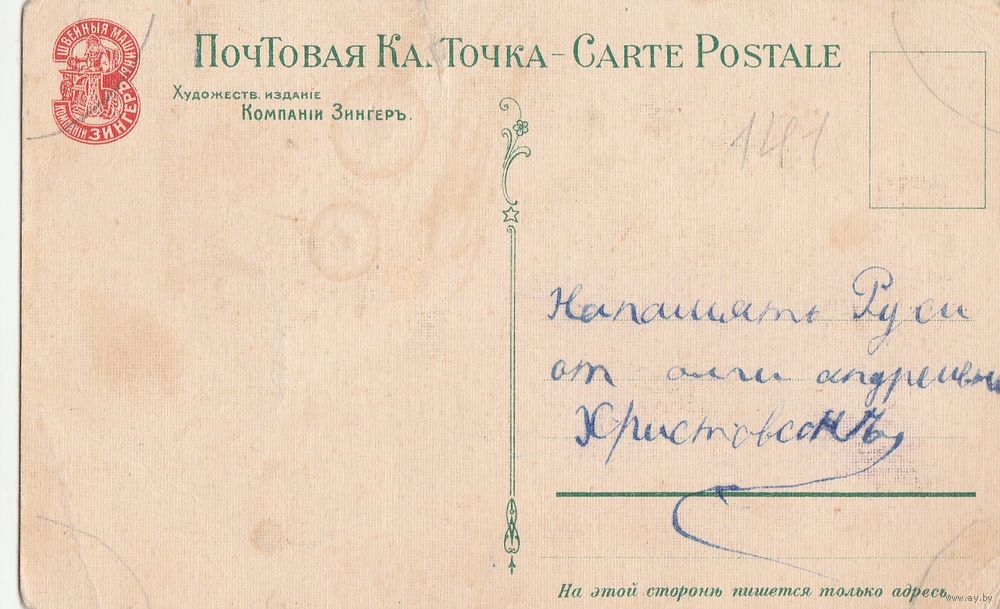 ШВЕЙНЫЯ МАШИНЫ
КОМПАНIИ ЗИНГЕРЪ
ПОЧТОВАЯ КАРТОЧКА – CARTE POSTALE
ХУДОЖЕСТВ. ИЗДАНIЕ
КОМПАНIИ ЗИНГЕРЪ.
141
Напамять Руси
от олги андреивне
ХристовсонЪ
На этой сторонѣ пишется только адресъ.
www.ay.by